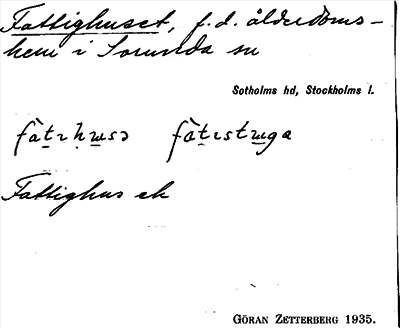 Fattighuset, f.d. ålderdoms-
hem i Sorunda sn
Sotholms hd, Stockholms l.
Fattighus ek
GÖRAN ZETTERBERG 1935.